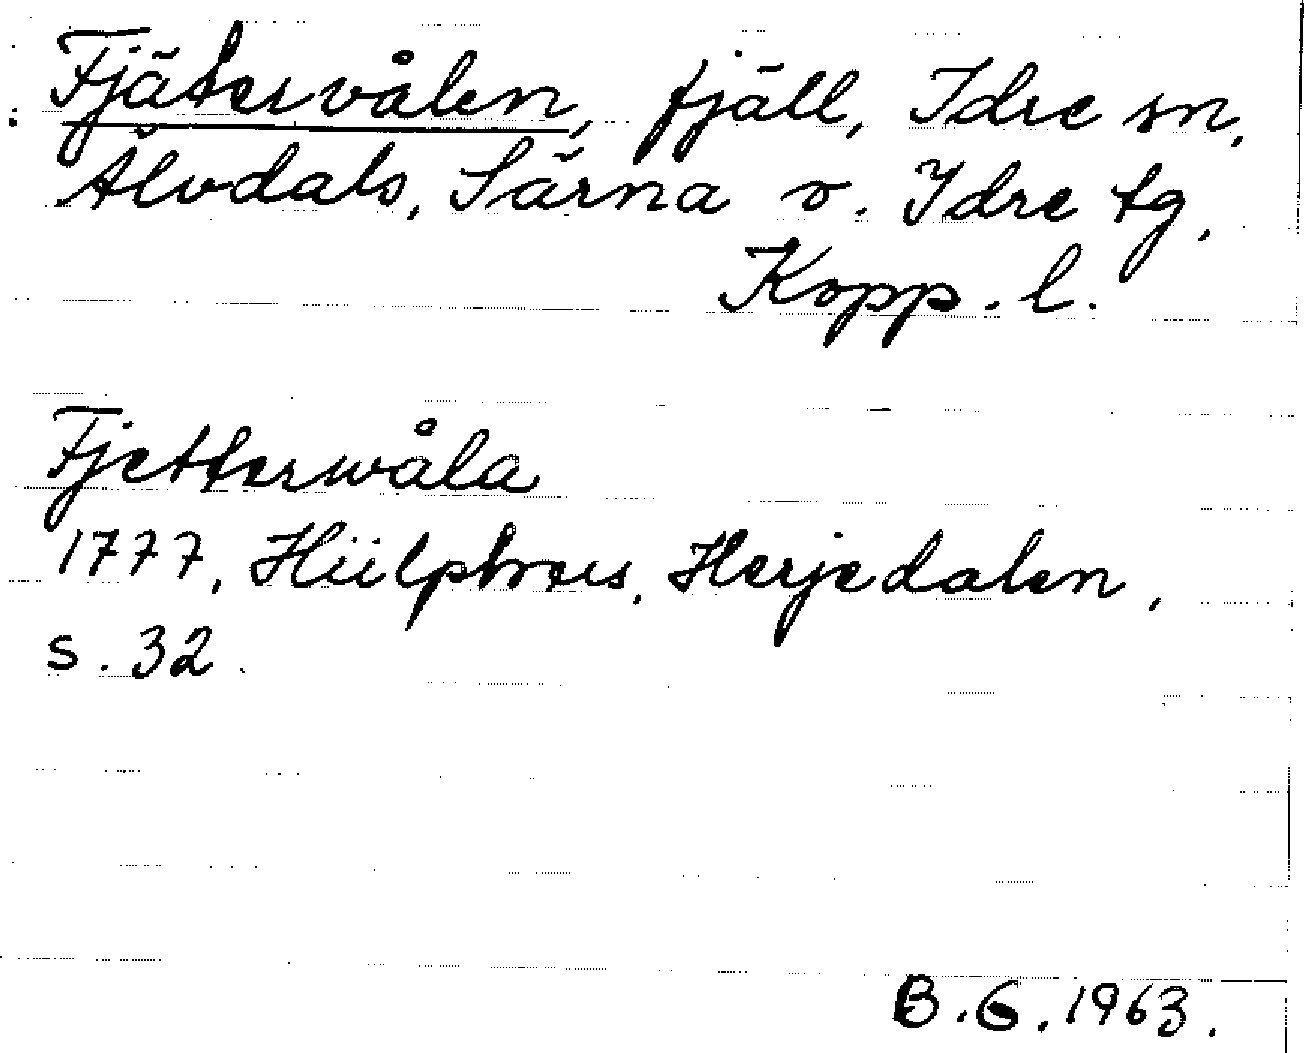 Fjätervålen, fjäll, Idre sn,
Älvdals, Särna o. Idre tg,
Kopp. l.
Fjetterwåla
1777, Hülphers, Herjedalen,
s. 32.
B.G. 1963.